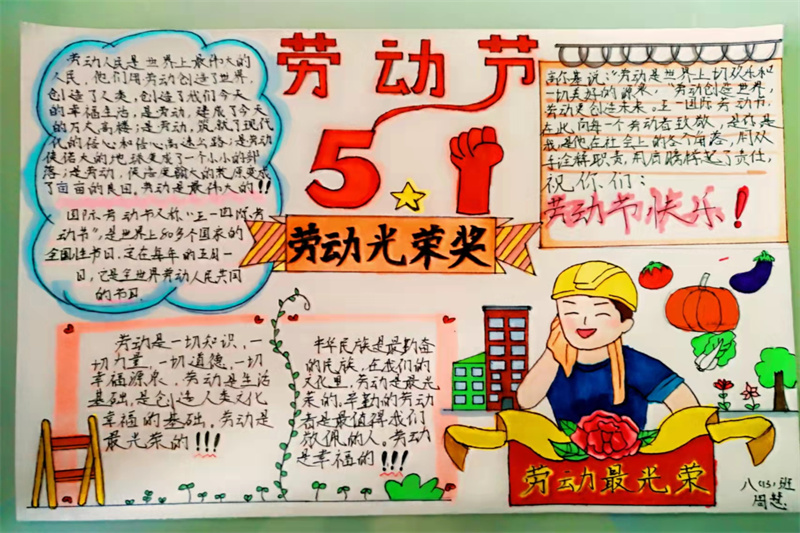 劳动节
5.1
劳动光荣奖
劳动人民是世界上最伟大的
人民,他们用劳动创造了世界,
创造了人类,创造了我们今天
的幸福生活,是劳动,建成了今天
的万丈高楼;是劳动,筑就了现代
化的信心和信心高速公路;是劳动
使偌大的地球变成了一个小小的部
落;是劳动,使浩瀚的荒原变成
了亩亩的良田。劳动是最伟大的!!!
国际劳动节又称“五一国际劳
动节”,是世界上80多个国家的
全国性节日,定在每年的五月一
日,它是全世界劳动人民共同
的节日。
说:“劳动是世界上一切欢乐和
一切美好的源泉,”劳动创造世界,
劳动更创造未来。五一国际劳动节,
在此向每一个劳动者致敬,
是他在社会上的各个角落,用双
手诠释职责,用肩膀撑起了责任,
祝你们:
劳动节快乐!
劳动是一切知识,一
切力量,一切道德,一切
幸福源泉,劳动是生活
基础,是创造人类文化
幸福的基础,劳动是
最光荣的!!!
中华民族是最勤奋
的民族,在我们的
文化里,劳动是最光
荣的,辛勤的劳动
者是最值得我们
敬佩的人。劳动
是幸福的!!!
劳动最光荣
八班
周慧